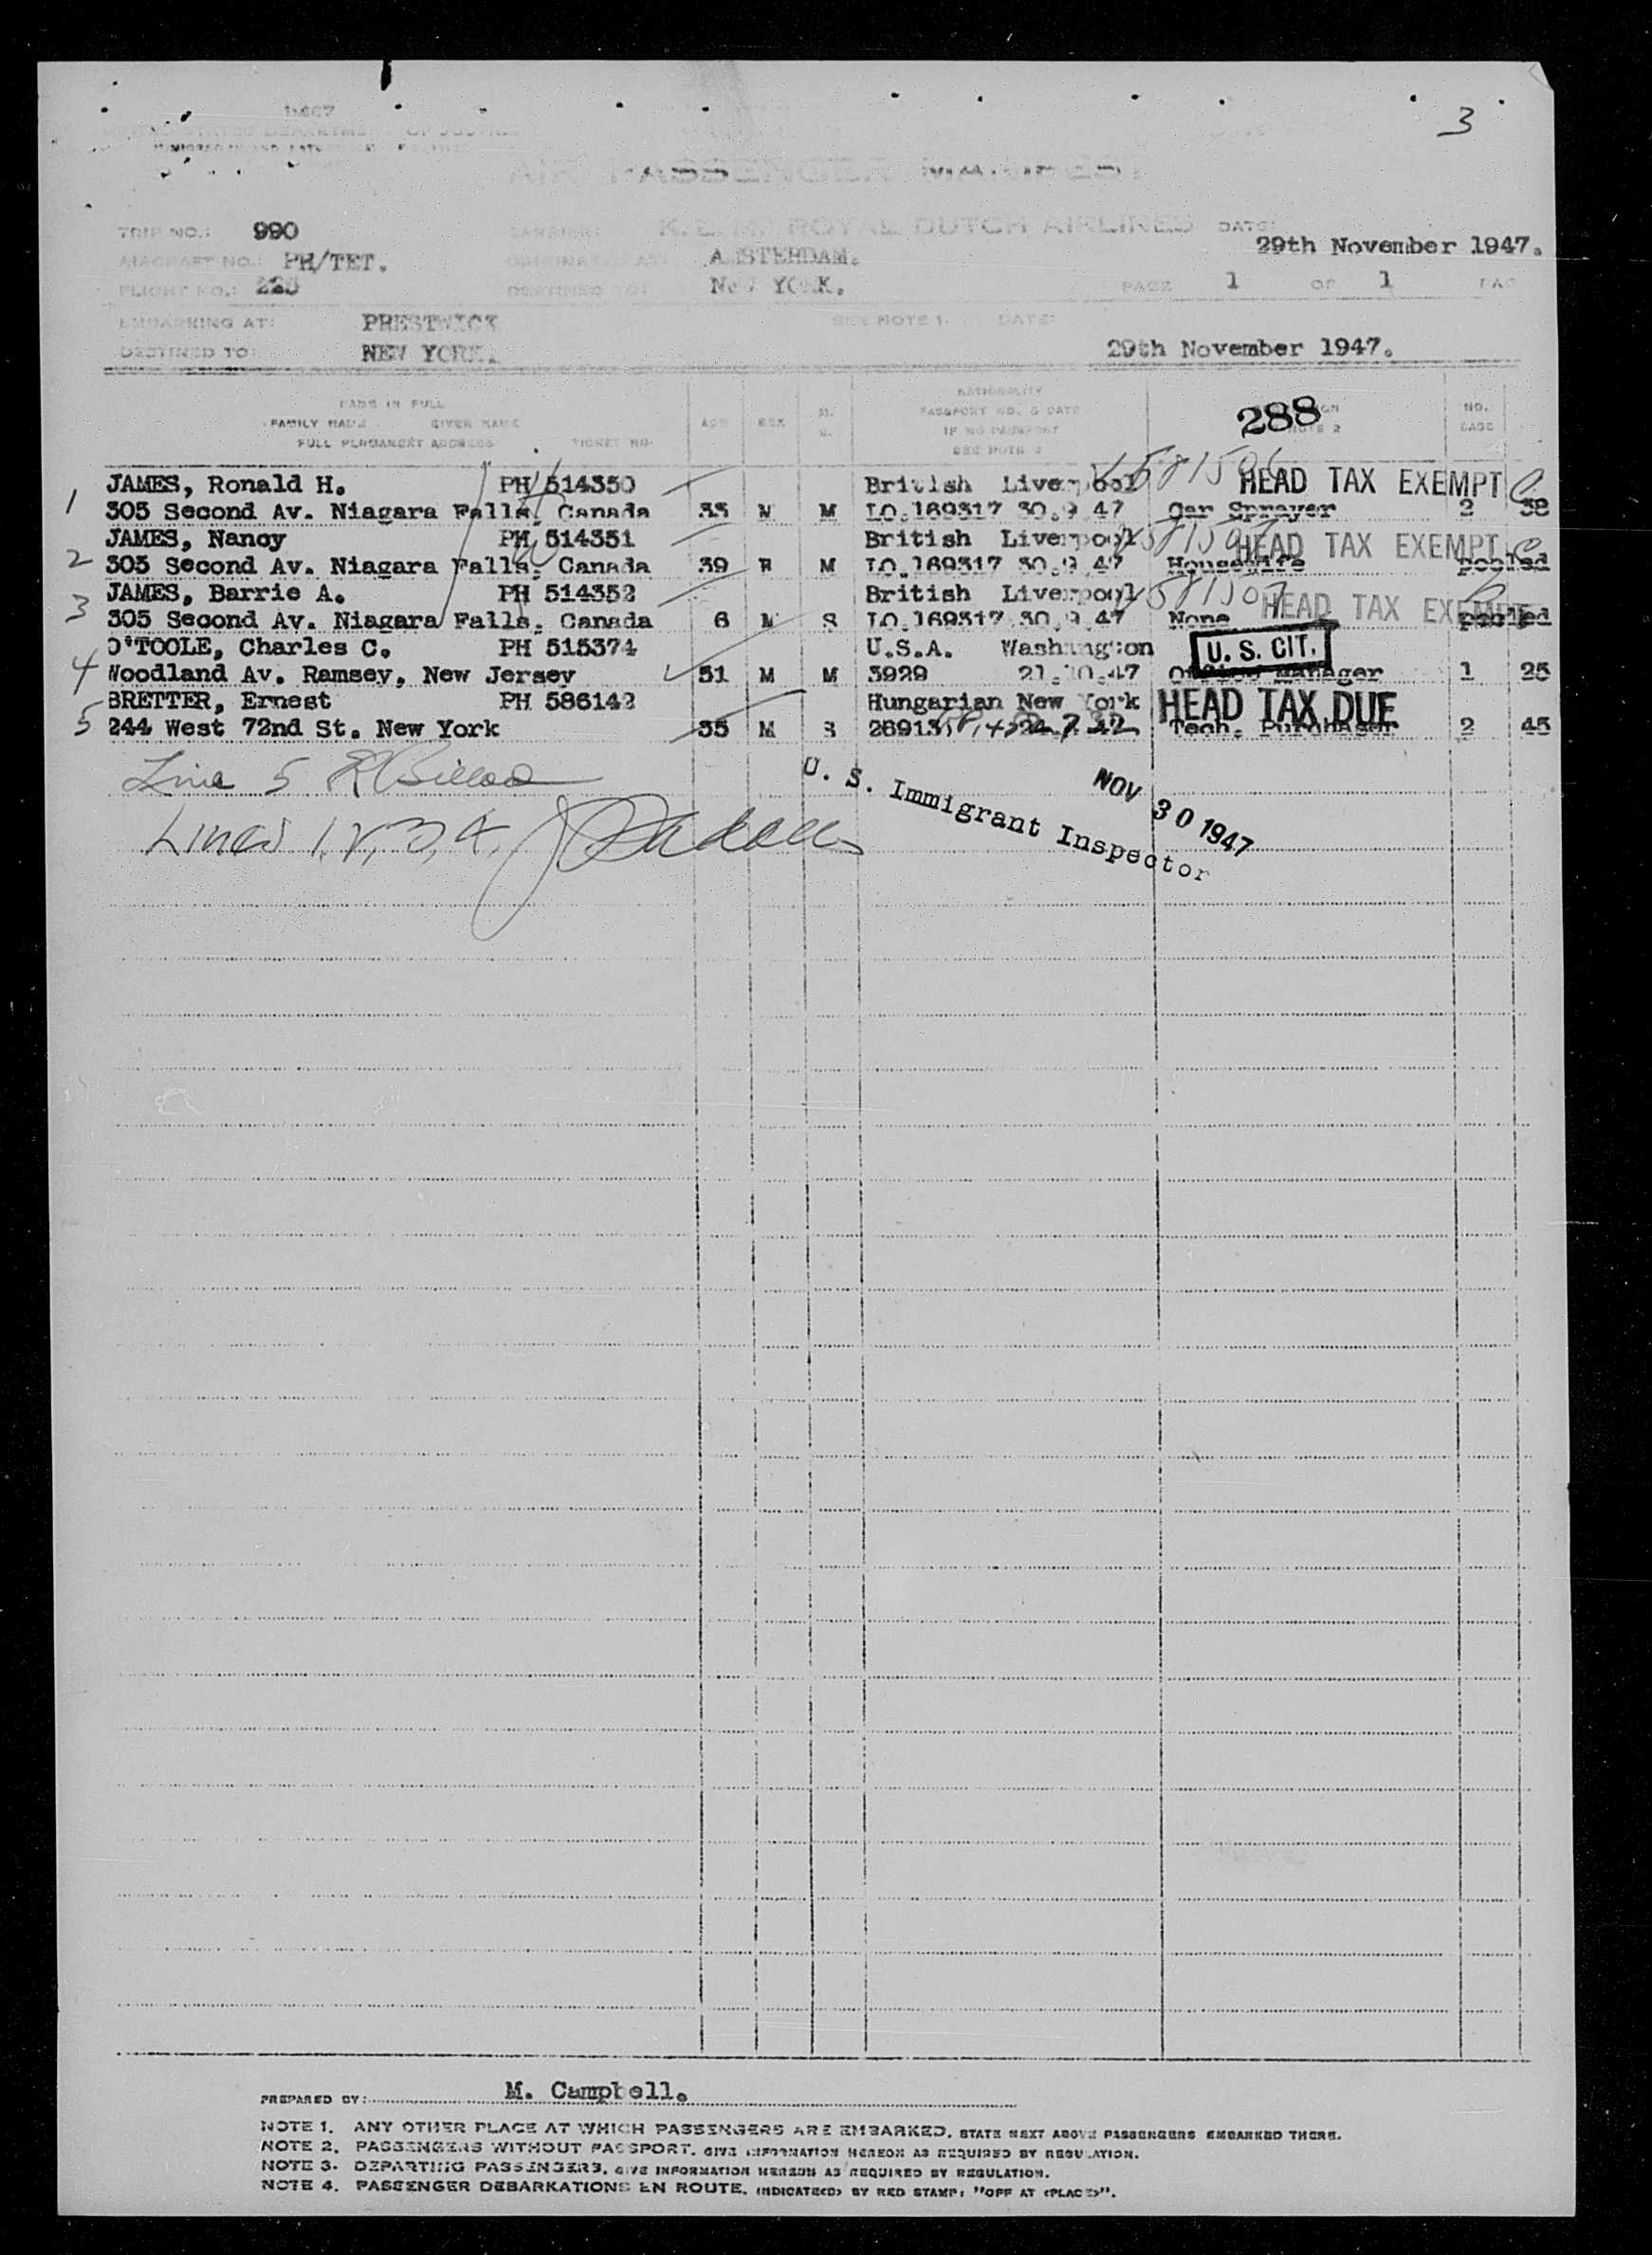 3
AIR PASSENGER MANIFEST
TRIP NO.: 990 CARRIER: K. L. M. ROYAL DUTCH AIRLINES DATE: 29th November 1947.
AIRCRAFT NO.: PH/TET. ORIGINATING AT: AMSTERDAM.
FLIGHT NO.: DESTINED TO: NEW YORK. PAGE 1 OF 1
EMBARKING AT: PRESTWICK SEE NOTE 1. DATE:
DESTINED TO: NEW YORK. 29th November 1947.
NAME IN FULL NATIONALITY
FAMILY NAME GIVEN NAME AGE SEX M. PASSPORT NO. & DATE 288 NO.
FULL PERMANENT ADDRESS TICKET NO. S. IF NO PASSPORT NOTE 2
SEE NOTE 2
JAMES, Ronald H. PH 514350 British Liverpool HEAD TAX EXEMPT
1 305 Second Av. Niagara Falls, Canada 33 M M LO.169317 30.9.47 Car Sprayer 2 38
JAMES, Nancy PH 514351 British Liverpool HEAD TAX EXEMPT
2 305 Second Av. Niagara Falls, Canada 39 F M LO.169317 30.9.47 Housewife pooled
JAMES, Barrie A. PH 514352 British Liverpool HEAD TAX EXEMPT
3 305 Second Av. Niagara Falls, Canada 6 M S LO.169317 30.9.47 None pooled
O'TOOLE, Charles C. PH 515374 U.S.A. Washington U. S. CIT.
4 Woodland Av. Ramsey, New Jersey 51 M M 3929 21.10.47 Manager 1 25
BRETTER, Ernest PH 586142 Hungarian New York HEAD TAX DUE
5 244 West 72nd St. New York 35 M S Tech. Purchaser 2 45
Line 5
Lines 1, 2, 3, 4,
U. S. Immigrant Inspector
NOV 30 1947
PREPARED BY: M. Campbell.
NOTE 1. ANY OTHER PLACE AT WHICH PASSENGERS ARE EMBARKED. STATE NEXT ABOVE PASSENGERS EMBARKED THERE.
NOTE 2. PASSENGERS WITHOUT PASSPORT. GIVE INFORMATION HEREON AS REQUIRED BY REGULATION.
NOTE 3. DEPARTING PASSENGERS. GIVE INFORMATION HEREON AS REQUIRED BY REGULATION.
NOTE 4. PASSENGER DEBARKATIONS EN ROUTE. INDICATE(D) BY RED STAMP: "OFF AT (PLACE)".